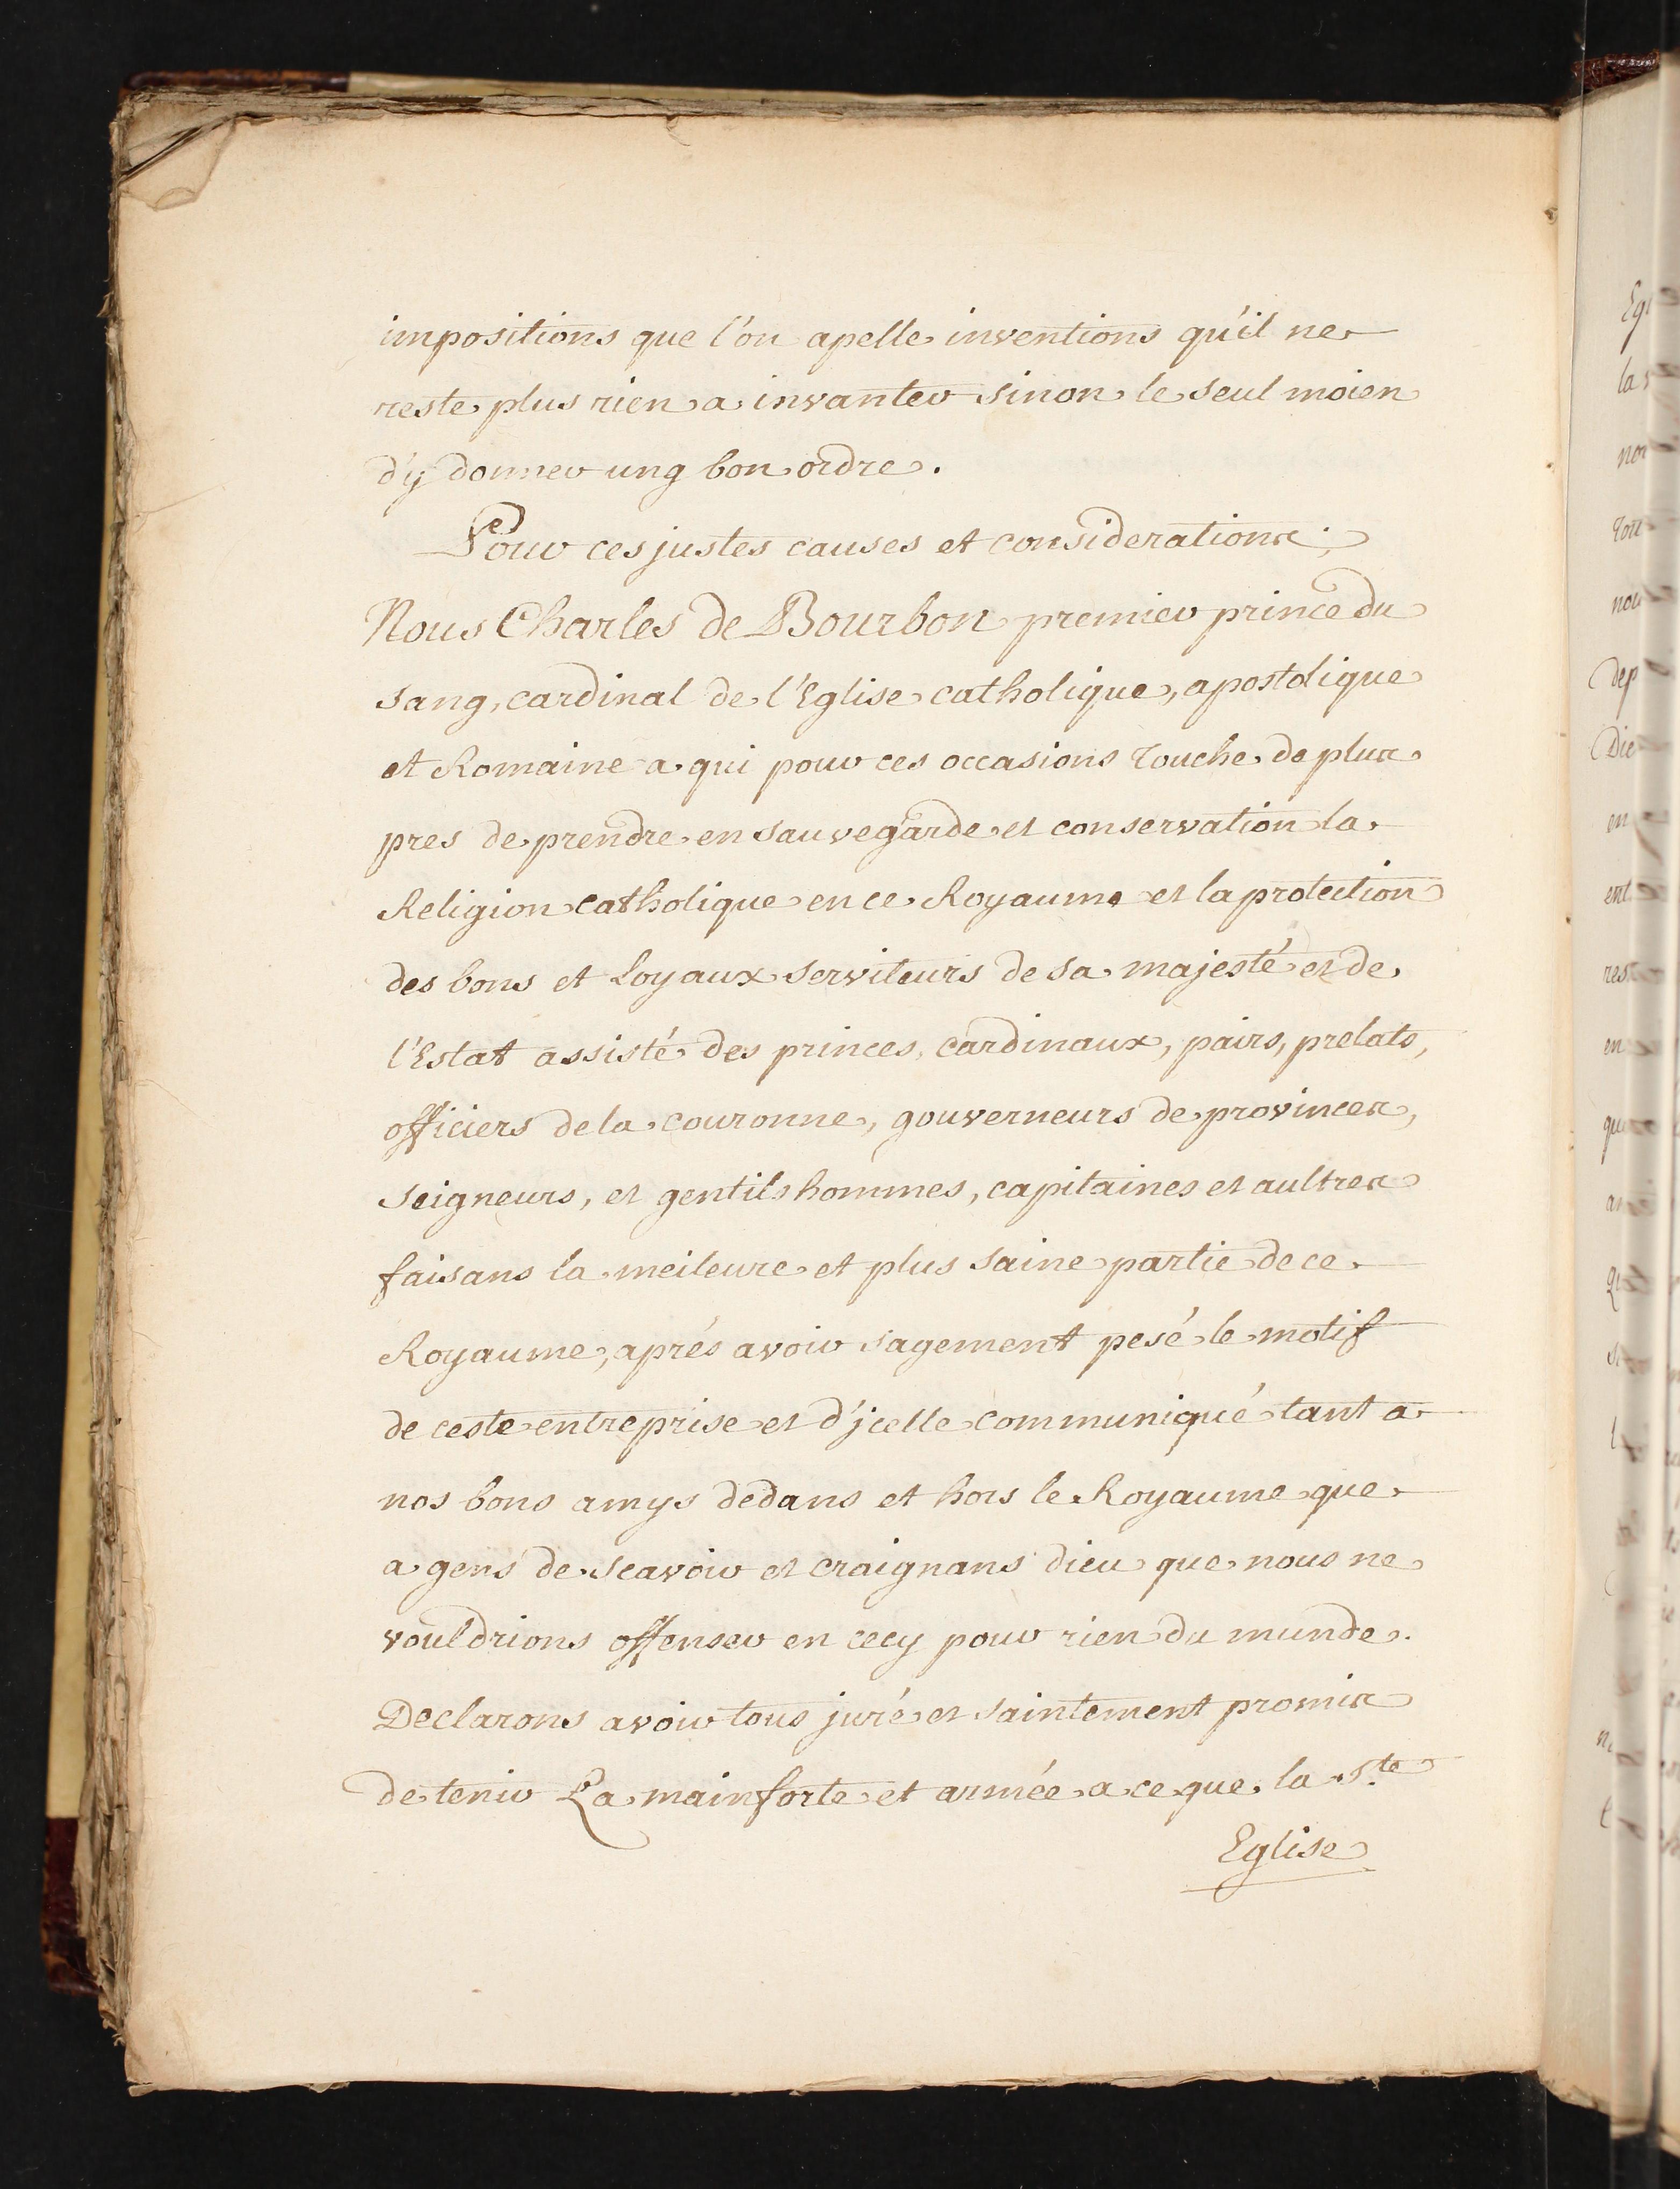 impositions que l'on apelle inventions qu'il ne
reste plus rien a invanter sinon le seul moien
d'y donner ung bon ordre.
Pour ces justes causes et considerations;
Nous Charles de Bourbon premier prince du
sang, cardinal de l'Eglise catholique, apostolique
et Romaine a qui pour ces occasions touche de plus
pres de prendre en sauvegarde et conservation la
Religion catholique en ce Royaume et la protection
des bons et Loyaux serviteurs de sa majesté et de
l'Estat assisté des princes, cardinaux, pairs, prelats,
officiers de la couronne, gouverneurs de provinces,
seigneurs, et gentilshommes, capitaines et aultres
faisans la meileure et plus saine partie de ce
Royaume, aprés avoir sagement pesé le motif
de ceste entreprise et d'jcelle communiqué tant a
nos bons amys dedans et hors le Royaume que
a gens de scavoir et craignans dieu que nous ne
vouldrions offenser en cecy pour rien du munde.
Declarons avoir tous juré et saintement promis
de tenir La main forte et armée a ce que la Ste
Eglise